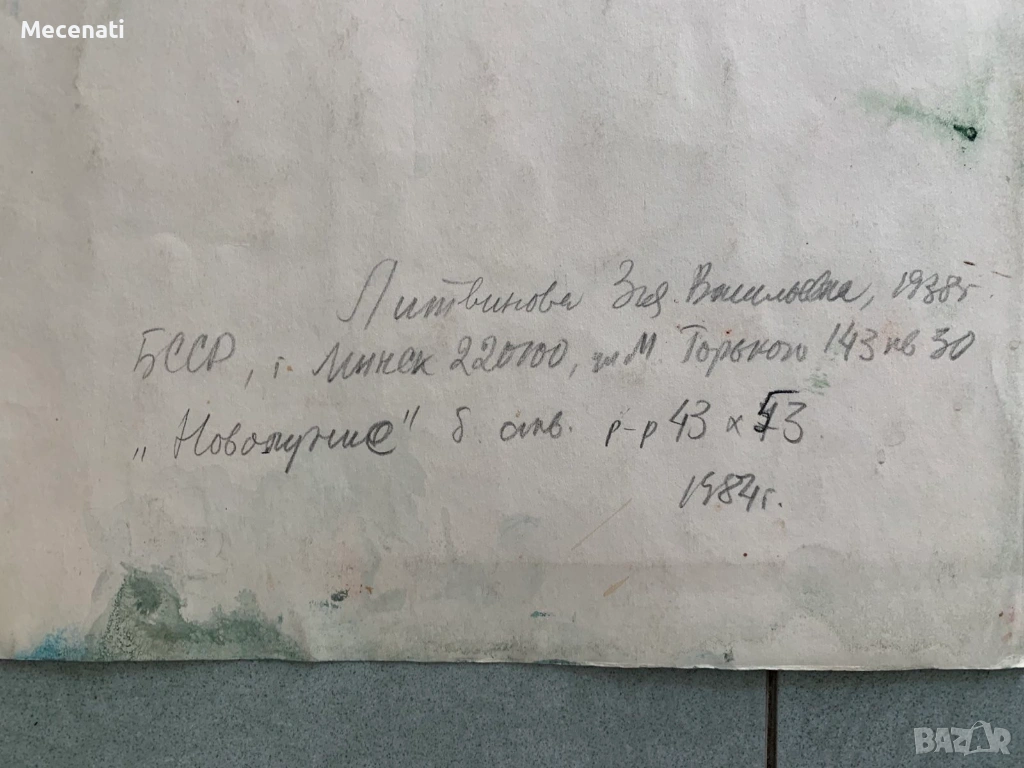 Mecenati
Литвинова Зоя Васильевна, 1938г.
БССР, г. Минск 220100, ул М. Горького 143 кв 30
„Новолуние" б. акв. р-р 43 х
1984г.
BAZAR